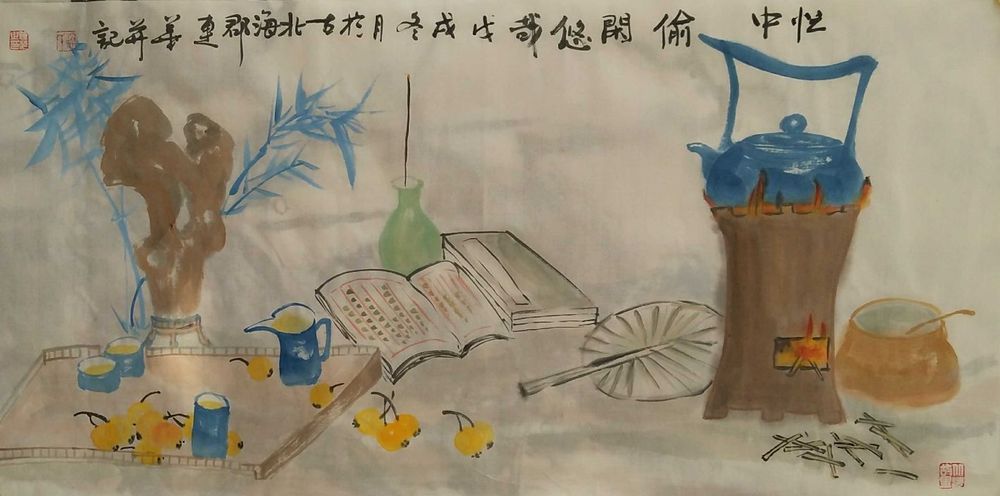 忙中偷閑悠哉戊戌冬月於古北海郡連華并記